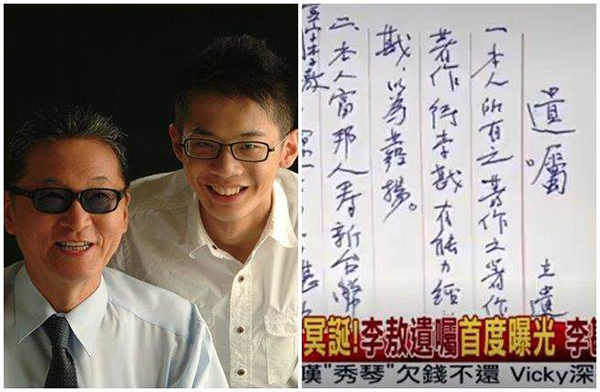 遺屬。 立遺
一本人所有之著作之著作
著作 李戡有能力經
戡,以為發揚。
二本人富邦人壽新台幣
冥誕!李敖遺囑首度曝光 李
嘆"秀琴"欠錢不還 Vicky深